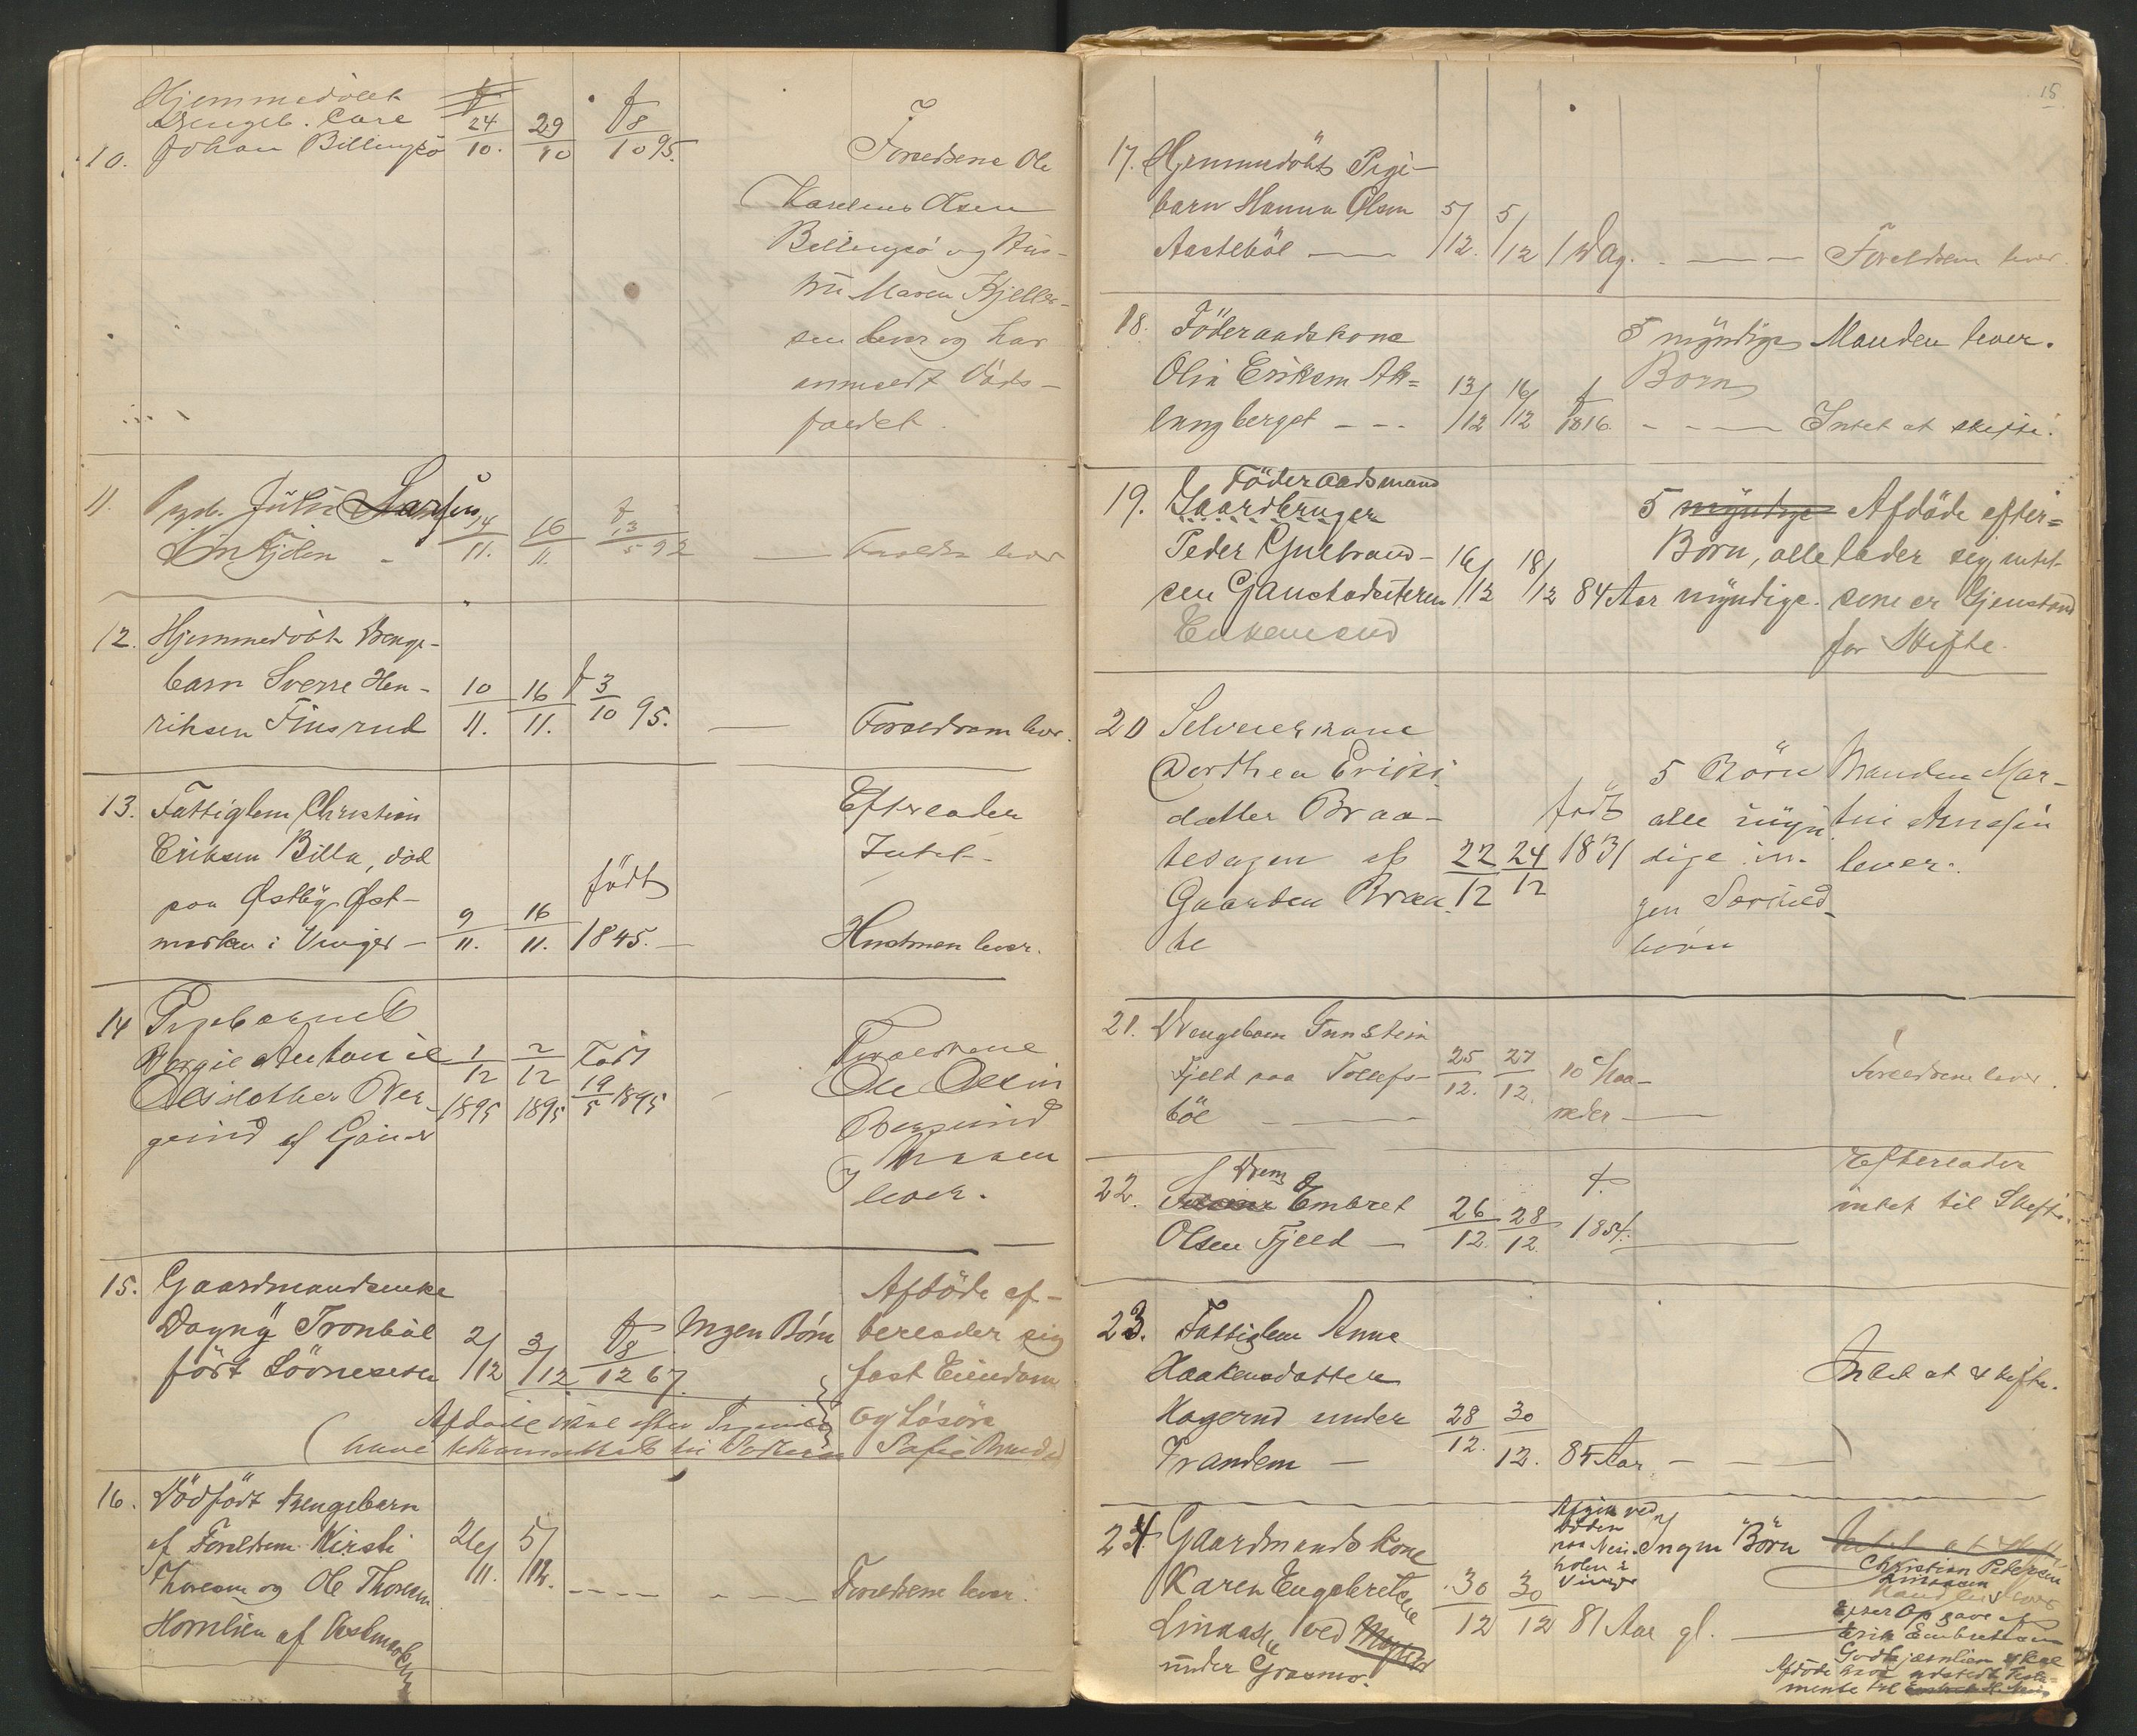 Hjemmedöbt
Drengeb. Carl
10. Johan Billingsö 24/10. 29/10 f 8/10 95.
Forældrene Ole
Karelius Olsen
Billingsö og Hus-
tru Maren Kjeller-
sen lever og har
anmeldt Döds-
faldet.
11. Pigeb. Julie Larsen
14/11. 16/11. f 13/5 92 — Forældr. lever
12. Hjemmedöbt Drenge-
barn Sverre Hen-
riksen Finsrud 10/11. 16/11. f 3/10 95. — Forældrene lever.
13. Fattiglem Christian
Eriksen Billa, död
paa Østby Øst-
marken i Vinger — 9/11. 16/11. födt 1845. —
Efterlader
Intet —
Hustruen lever.
14 Pigebarnet
Borgil Antonie
Olsdatter Ber-
gerud af
1/12 1895 2/12 1895 Født 19/5 1895
Forældrene
Ole Olsen
lever.
15. Gaardmandsenke
Dagny Tronböl
födt Lövneseter 2/12 3/12 f 8/12 67. Ingen Börn
Afdöde ef-
terlader sig
fast Eiendom
og Lösöre
16. Dödfödt Drengebarn
af Forældrene Kirsti
Thoresen og Ole Thoresen
Hornlien af Vestmarken
26/11. 5/12. — — — Forældrene lever.
15
17. Hjemmedöbt Pige-
barn Hanna Olsen
Aasteböl — 5/12. 5/12 1 Dag. — — Forældrene lever.
18. Föderaadskone
Olia Eriksen Ak-
langberget — 13/12 16/12 f 1816. — —
5 myndige
Born
Manden lever.
Intet at skifte.
19. Föderaadsmand
Gaardbruger
Peder Gulbrand-
sen 16/12 18/12 84 Aar
Enkemand
5 myndige
Börn, alle
myndige.
Afdöde efter-
lader sig intet
som er Gjenstand
for Skifte.
20 Selveierkone
Dorthea Eriks-
datter Braa-
tehagen af
Gaarden Braa-
te
22/12 24/12 födt 1831
5 Börn
alle myn-
dige in-
gen Særkuld-
börn
Manden Mar-
tin Arnesen
lever.
21. Drengebarn Gunstein
Fjeld paa Tollefs-
böl — 25/12. 27/12. 10 Maa-
neder —
Forældrene lever.
22. Dreng
Embret
Olsen Fjeld — 26/12. 28/12. f. 1854. —
Efterlader
intet til Skifte.
23. Fattiglem Anne
Haakensdatter
Hagerud under
Trandem — 28/12. 30/12. 85 Aar — —
Intet at skifte.
24 Gaardmandskone
Karen Engebretsen
Linnas ved
under Grasmo.
30/12 30/12 81 Aar gl. —
Afgik ved
Döden
paa Nesi-
holen i
Vinger
Ingen Börn
Intet at skifte
Christian Pedersen
lever
Efter Opgave af
Erik Embretsen
Afdöde have udstedt Testa-
mente til